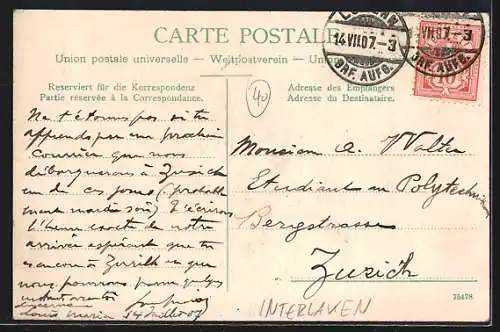 CARTE POSTALE
Union postale universelle – Weltpostverein – Union
LUZERN
14.VII.07.–3
BRF. AUFG.
14.VII.07.–3
BRF. AUFG.
Reserviert für die Korrespondenz
Partie réservée à la Correspondance.
40
Adresse des Empfängers
Adresse du Destinataire.
Ne t'étonne pas si tu
apprends par un prochain
courrier que nous
débarquerons à Zurich
un de ces jours (probable
ment mardi soir) t'écrirons
l'heure exacte de notre
arrivée espérant que tu
es encore à Zurich et que
nous pourrons passer qulqs
instants
Louis Maria 14 Juillet 07
Monsieur A. Walter
Etudiant au Polytechnicum
Bergstrasse
Zurich
75478
INTERLAKEN